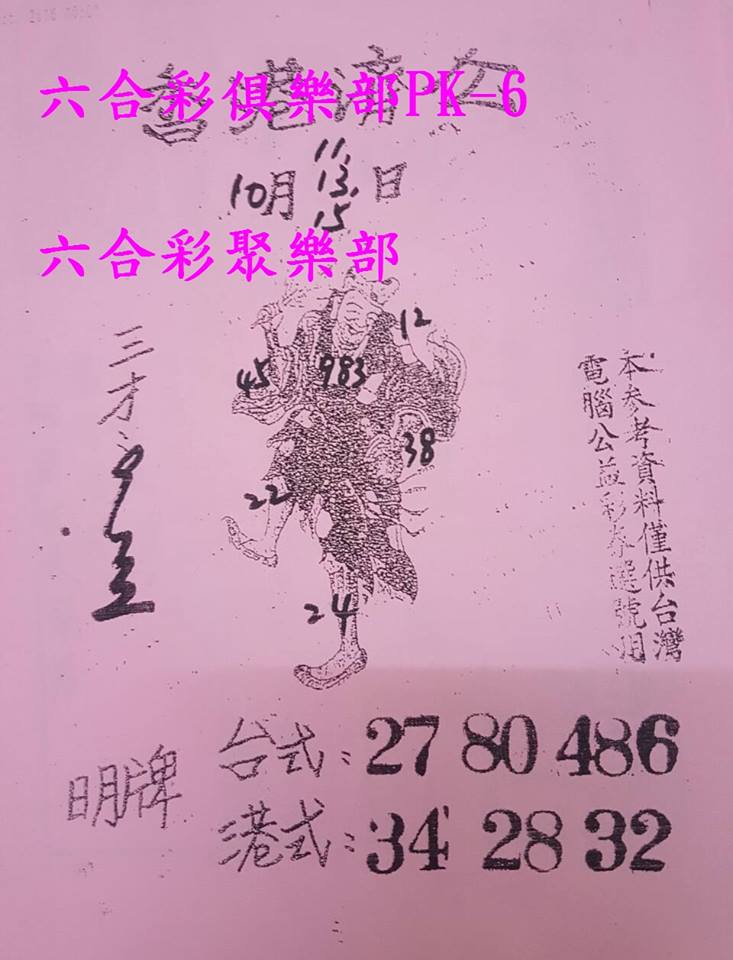 六合彩俱樂部PK-6
香港濟公
10月
11.
13.
15
日
六合彩聚樂部
12
45
983
38
22
24
三才
本参考資料僅供台灣
電腦公益彩券選號用
明牌
台式：27 80 486
港式：34 28 32